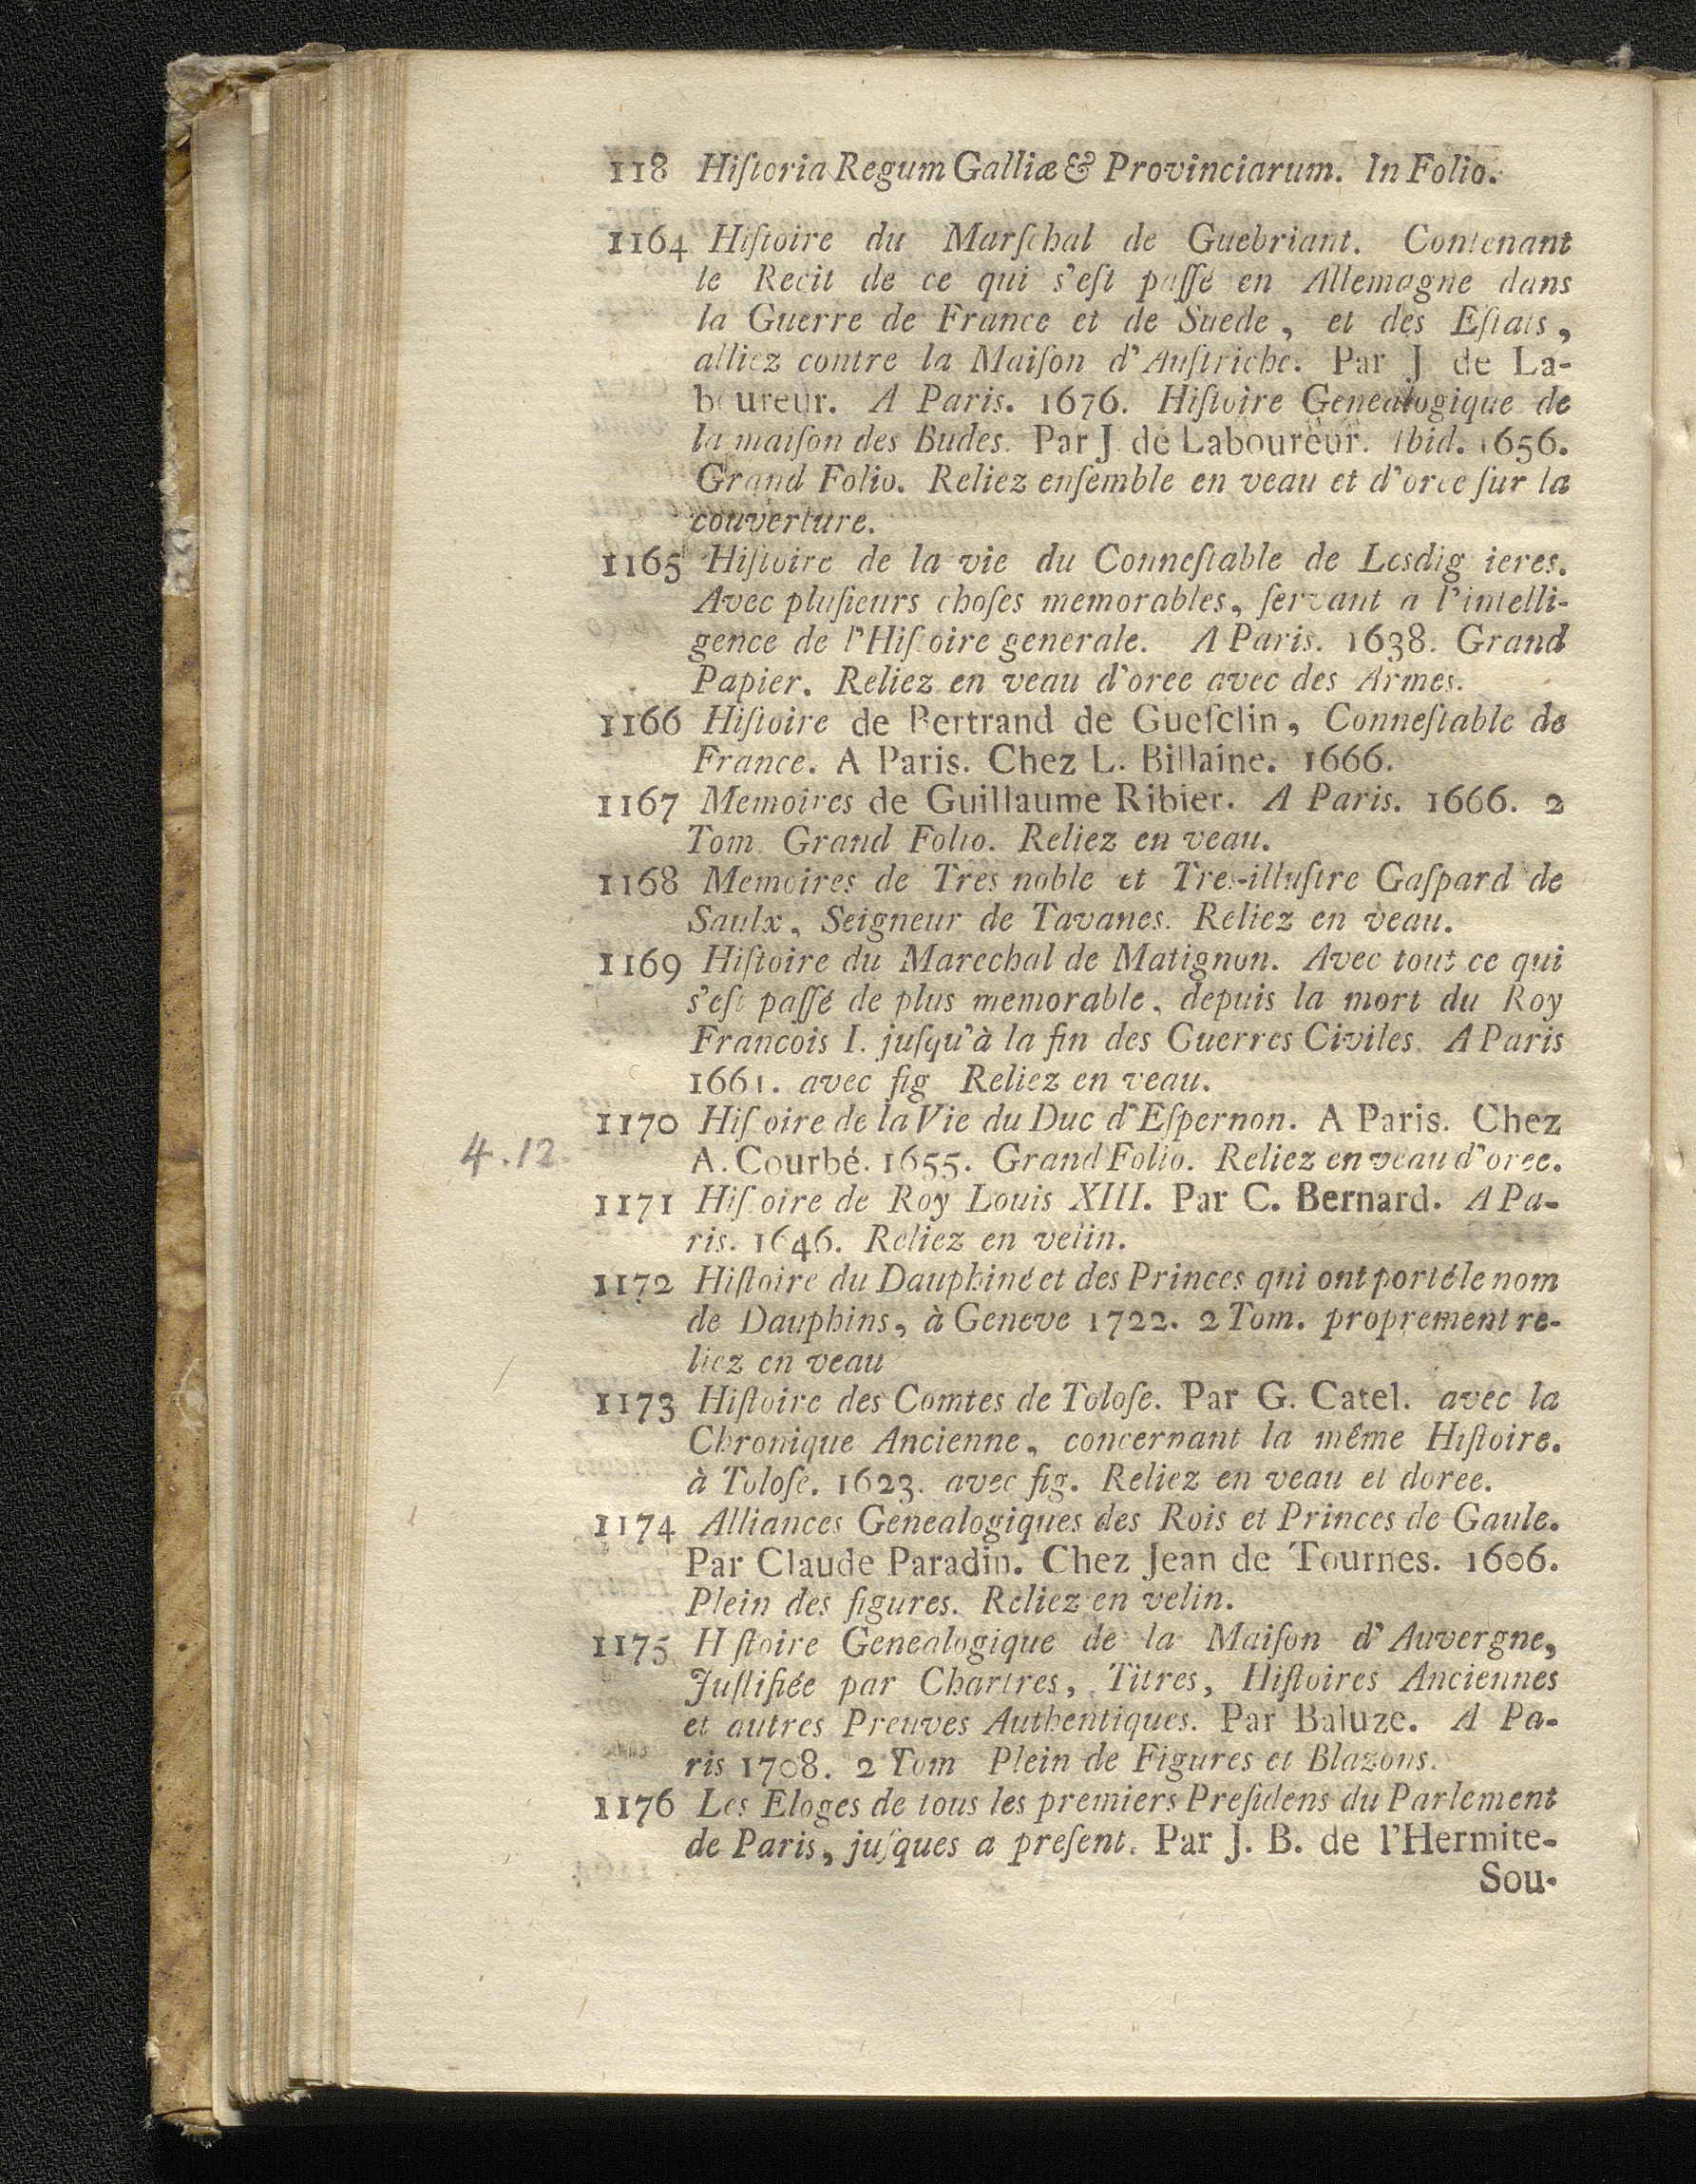 118 Hiſtoria Regum Galliæ & Provinciarum. In Folio.
1164 Hiſtoire du Marſchal de Guebriant. Contenant
le Recit de ce qui s'eſt paſſé en Allemagne dans
la Guerre de France et de Suede, et des Eſtats,
alliez contre la Maiſon d'Auſtriche. Par J de La-
boureur. A Paris. 1676. Hiſtoire Genealogique de
la maiſon des Budes. Par J. de Laboureur. Ibid. 1656.
Grand Folio. Reliez enſemble en veau et d'oree ſur la
couverture.
1165 Hiſtoire de la vie du Conneſtable de Lesdig ieres.
Avec pluſieurs choſes memorables, ſervant a l'intelli-
gence de l'Hiſtoire generale. A Paris. 1638. Grand
Papier. Reliez en veau d'oree avec des Armes.
1166 Hiſtoire de Bertrand de Gueſclin, Conneſtable de
France. A Paris. Chez L. Billaine. 1666.
1167 Memoires de Guillaume Ribier. A Paris. 1666. 2
Tom. Grand Folio. Reliez en veau.
1168 Memoires de Tres noble et Tres-illuſtre Gaſpard de
Saulx, Seigneur de Tavanes. Reliez en veau.
1169 Hiſtoire du Marechal de Matignon. Avec tout ce qui
s'eſt paſſé de plus memorable, depuis la mort du Roy
Francois I. juſqu'à la fin des Guerres Civiles. A Paris
1661. avec fig Reliez en veau.
1170 Hiſtoire de la Vie du Duc d'Eſpernon. A Paris. Chez
4.12. A. Courbé. 1655. Grand Folio. Reliez en veau d'oree.
1171 Hiſtoire de Roy Louis XIII. Par C. Bernard. A Pa-
ris. 1646. Reliez en velin.
1172 Hiſtoire du Dauphiné et des Princes qui ont porté le nom
de Dauphins, à Geneve 1722. 2 Tom. proprement re-
liez en veau
1173 Hiſtoire des Comtes de Toloſe. Par G. Catel. avec la
Chronique Ancienne, concernant la même Hiſtoire.
à Toloſe. 1623. avec fig. Reliez en veau et doree.
1174 Alliances Genealogiques des Rois et Princes de Gaule.
Par Claude Paradin. Chez Jean de Tournes. 1606.
Plein des figures. Reliez en velin.
1175 H ſtoire Genealogique de la Maiſon d'Auvergne,
Juſtifiée par Chartres, Titres, Hiſtoires Anciennes
et autres Preuves Authentiques. Par Baluze. A Pa-
ris 1708. 2 Tom Plein de Figures et Blazons.
1176 Les Eloges de tous les premiers Preſidens du Parlement
de Paris, juſques a preſent. Par J. B. de l'Hermite-
Sou-